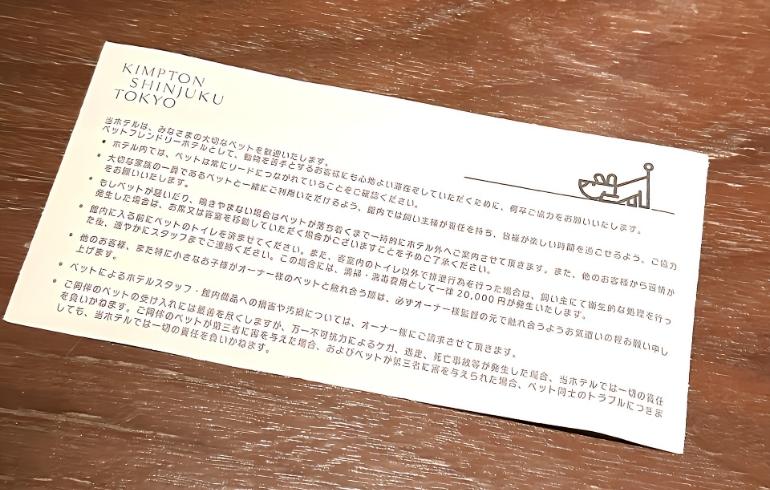 KIMPTON
SHINJUKU
TOKYO
当ホテルは、みなさまの大切なペットを歓迎いたします。
ペットフレンドリーホテルとして、動物を苦手とするお客様にも心地よい滞在をしていただくために、何卒ご協力をお願いいたします。
• ホテル内では、ペットは常にリードにつながれていることをご確認ください。
• 大切な家族の一員であるペットと一緒にご利用いただけるよう、館内では飼い主様が責任を持ち、皆様が楽しい時間を過ごせるよう、ご協力
をお願いいたします。
• もしペットが騒いだり、鳴きやまない場合はペットが落ち着くまで一時的にホテル外へご案内させて頂きます。また、他のお客様から苦情が
発生した場合は、お席又は客室を移動していただく場合がございますことを予めご了承ください。
• 館内に入る前にペットのトイレを済ませてください。また、客室内のトイレ以外で排泄行為を行った場合は、飼い主にて衛生的な処理を行っ
た後、速やかにスタッフまでご連絡ください。この場合には、清掃・消毒費用として一律 20,000 円が発生いたします。
• 他のお客様、また特に小さなお子様がオーナー様のペットと触れ合う際は、必ずオーナー様監督の元で触れ合うようお気遣いの程お願い申し
上げます。
• ペットによるホテルスタッフ・館内備品への損害や汚損については、オーナー様にご請求させて頂きます。
• ご同伴のペットの受け入れには最善を尽くしますが、万一不可抗力によるケガ、逃走、死亡事故等が発生した場合、当ホテルでは一切の責任
を負いかねます。ご同伴のペットが第三者に害を与えた場合、およびペットが第三者に害を与えられた場合、ペット同士のトラブルにつきま
しても、当ホテルでは一切の責任を負いかねます。